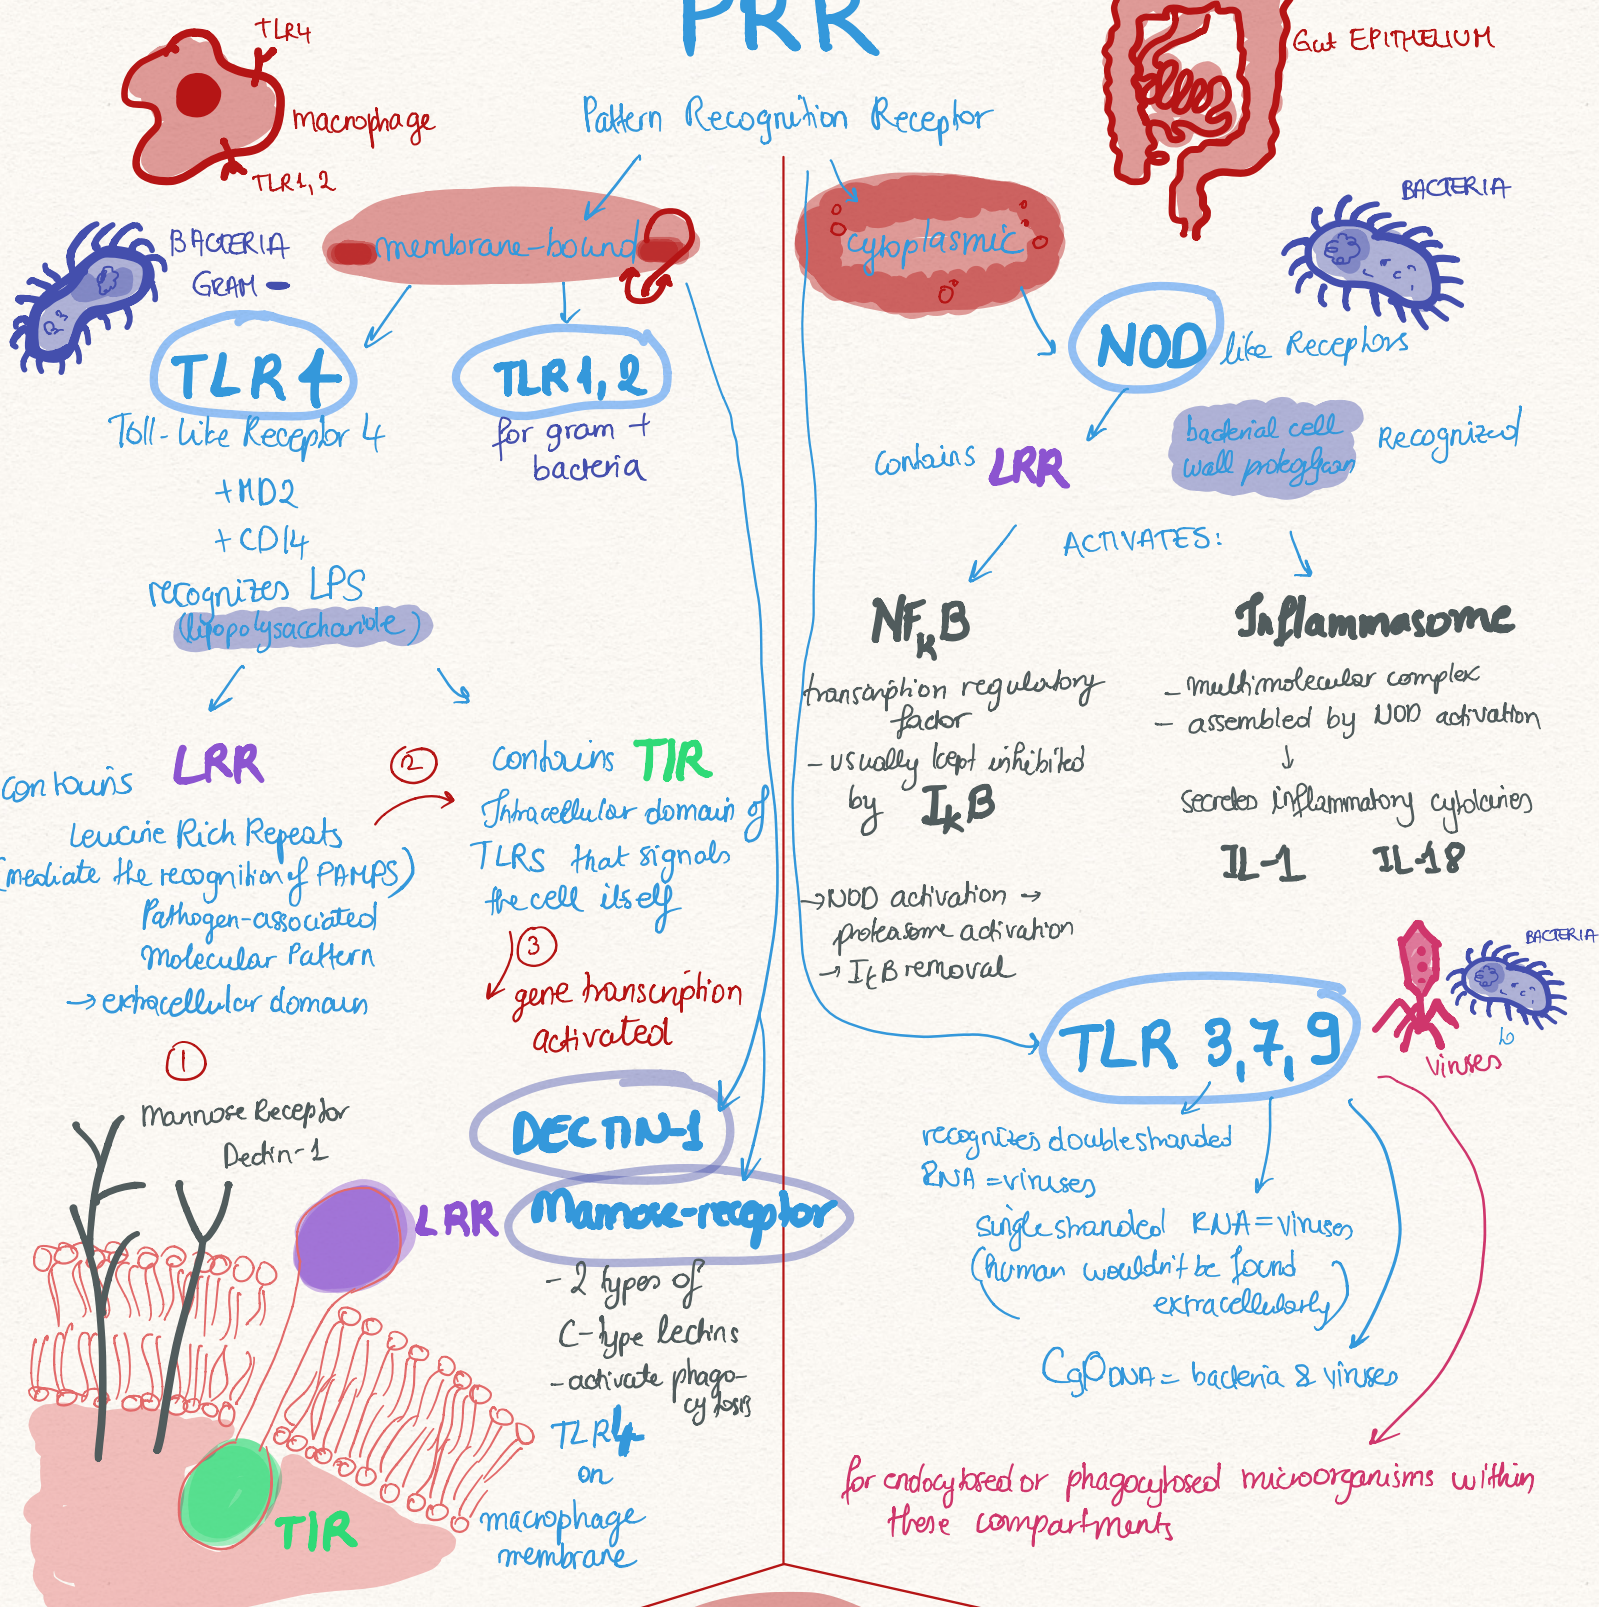 PRR
Pattern Recognition Receptor
TLR4
macrophage
TLR1,2
BACTERIA
GRAM -
membrane-bound
TLR 4
Toll-Like Receptor 4
+MD2
+CD14
recognizes LPS
(lipopolysaccharide)
TLR 1, 2
for gram +
bacteria
contains LRR
Leucine Rich Repeats
(mediate the recognition of PAMPS)
Pathogen-associated
Molecular Pattern
→ extracellular domain
1
2
contains TIR
Intracellular domain of
TLRS that signals
the cell itself
3
gene transcription
activated
Mannose Receptor
Dectin-1
LRR
TIR
DECTIN-1
Mannose-receptor
- 2 types of
C-type lectins
- activate phago-
cytosis
TLR4
on
macrophage
membrane
Gut EPITHELIUM
BACTERIA
cytoplasmic
NOD like Receptors
contains LRR
bacterial cell
wall proteoglycan
Recognized
ACTIVATES:
NFkB
transcription regulatory
factor
- usually kept inhibited
by IkB
→ NOD activation →
proteasome activation
→ IkB removal
Inflammasome
- multimolecular complex
- assembled by NOD activation
↓
Secretes inflammatory cytokines
IL-1 IL-18
TLR 3,7,9
BACTERIA
Viruses
recognizes double stranded
RNA = viruses
single stranded RNA = viruses
(human wouldn't be found
extracellularly)
CgP DNA = bacteria & viruses
for endocytosed or phagocytosed microorganisms within
these compartments